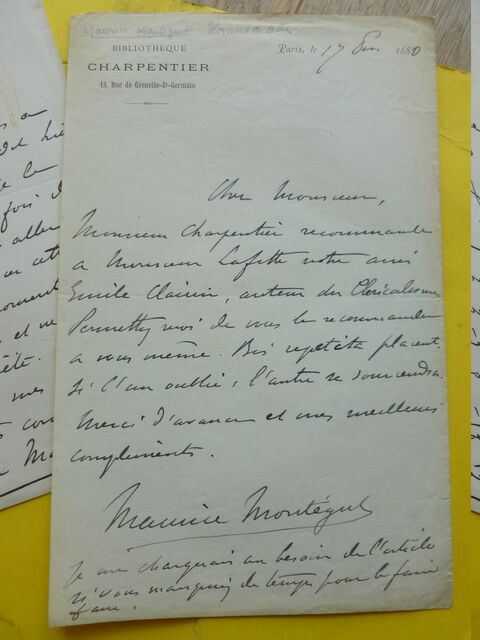 Maurice Montégut Homme de lettres
BIBLIOTHÈQUE
CHARPENTIER
13, Rue de Grenelle-St-Germain
Paris, le 17 1880
Cher Monsieur,
Monsieur Charpentier recommande
a Monsieur Lafitte notre ami
Emile Clairin, auteur du Cléricalisme
Permettez moi de vous le recommander
a vous même. Bis repetita placent.
Si l'un oublie, l'autre se souviendra.
Merci d'avance et mes meilleurs
compliments.
Maurice Montégut
Je me chargerais au besoin de l'article
si vous manquiez de temps pour le faire
faire.